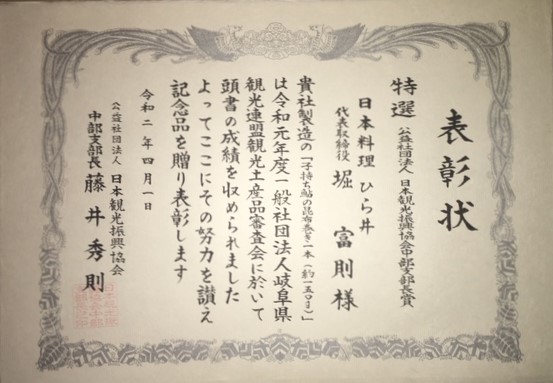 表彰状
特選 公益社団法人 日本観光振興協会中部支部長賞
日本料理 ひら井
代表取締役 堀 富則 様
貴社製造の「子持ち鮎の昆布巻き一本(約一五〇g)」
は令和元年度一般社団法人岐阜県
観光連盟観光土産品審査会に於いて
頭書の成績を収められました
よってここにその努力を讃え
記念品を贈り表彰します
令和二年四月一日
公益社団法人 日本観光振興協会
中部支部長 藤井秀則